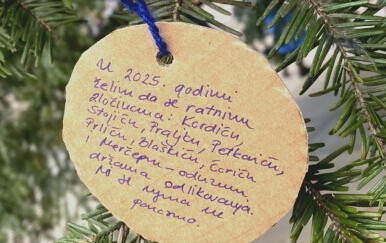 U 2025. godini
želim da se ratnim
zločincima: Kordiću,
Stojiću, Praljku, Petkoviću,
Prliću, Blaškiću, Ćoriću
i Merčepu – oduzmu
državna odlikovanja.
Da se njima ne
ponosimo.